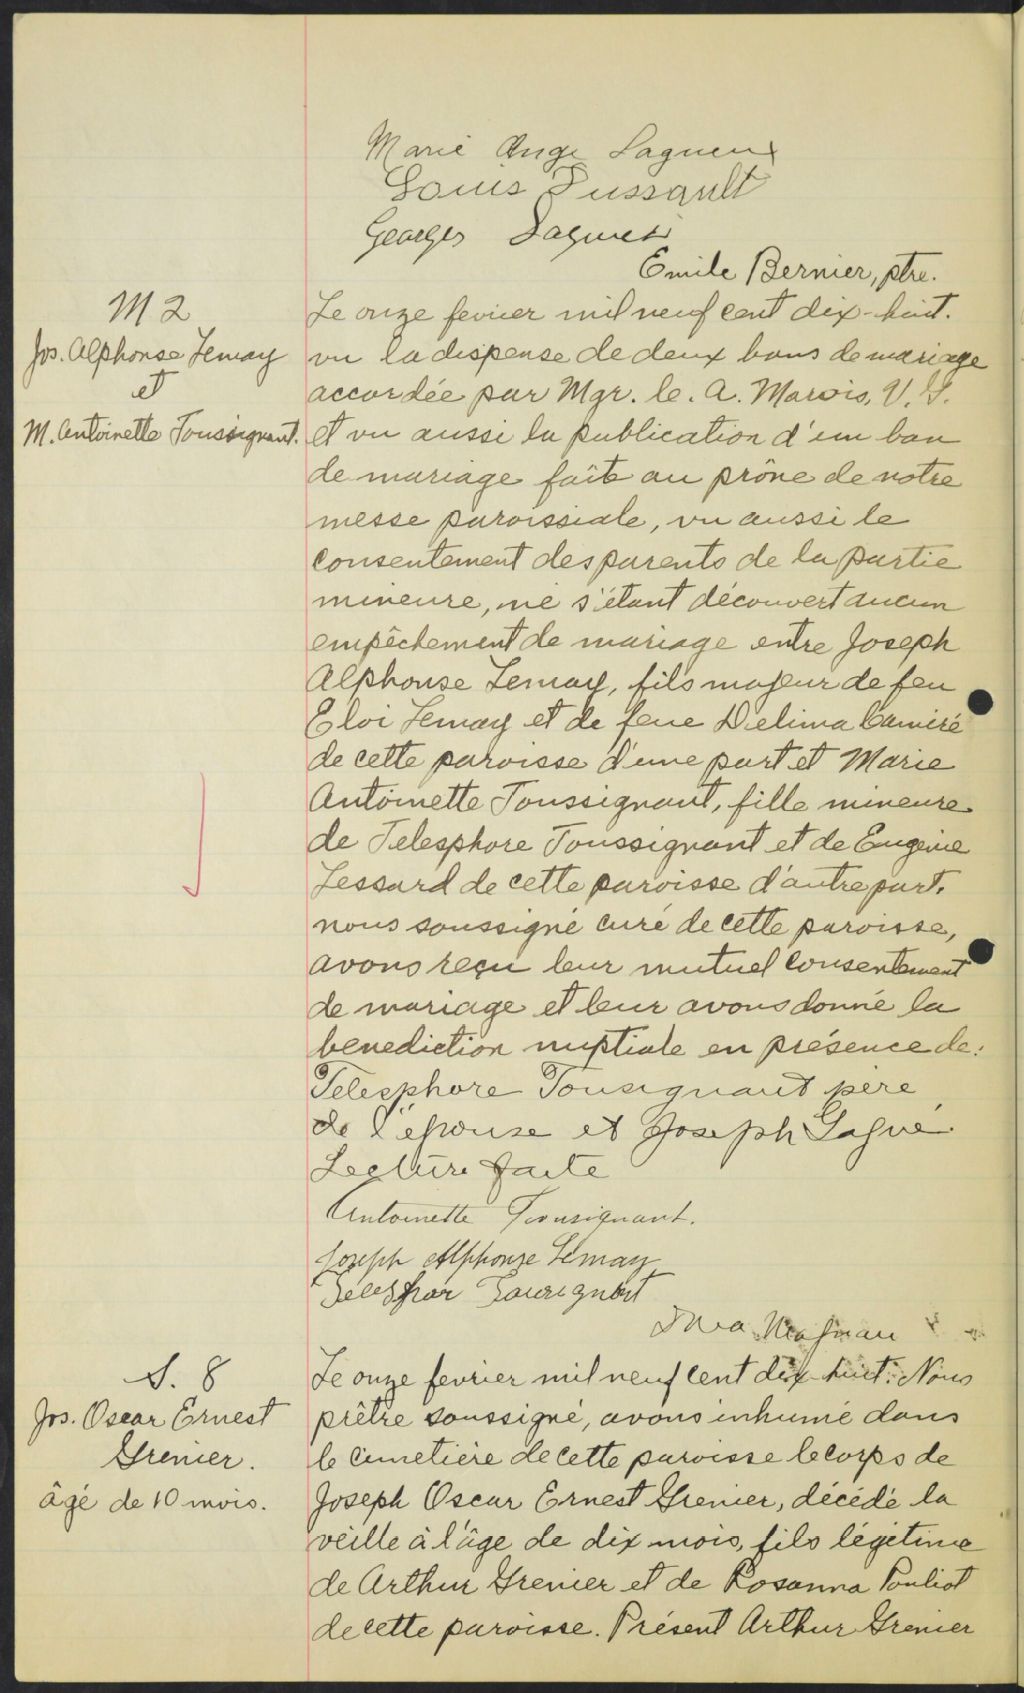 Marie Ange Lagueux
Louis Dussault
Georges Lagueux
Emile Bernier, ptre.
M 2
Jos. Alphonse Lemay
et
M. Antoinette Toussignant.
Le onze fevrier mil neuf cent dix-huit.
vu la dispense de deux bans de mariage
accordée par Mgr. le. A. Marois, V. G.
et vu aussi la publication d'un ban
de mariage faite au prône de notre
messe paroissiale, vu aussi le
consentement des parents de la partie
mineure, ne s'étant découvert aucun
empêchement de mariage entre Joseph
Alphonse Lemay, fils majeur de feu
Eloi Lemay et de feue Delima Camiré
de cette paroisse d'une part et Marie
Antoinette Toussignant, fille mineure
de Telesphore Toussignant et de Eugenie
Lessard de cette paroisse d'autre part.
nous soussigné curé de cette paroisse,
avons reçu leur mutuel consentement
de mariage et leur avons donné la
benediction nuptiale en présence de:
Telesphore Tousignant père
de l'épouse et Joseph Gagné.
Lecture faite
Antoinette Tousignant.
Joseph Alphonse Lemay
Telesfor Tousignant
S. 8
Jos. Oscar Ernest
Grenier.
âgé de 10 mois.
Le onze fevrier mil neuf cent dix-huit. Nous
prêtre soussigné, avons inhumé dans
le cimetière de cette paroisse le corps de
Joseph Oscar Ernest Grenier, décédé la
veille à l'âge de dix mois, fils légitime
de Arthur Grenier et de Rosanna Pouliot
de cette paroisse. Présent Arthur Grenier